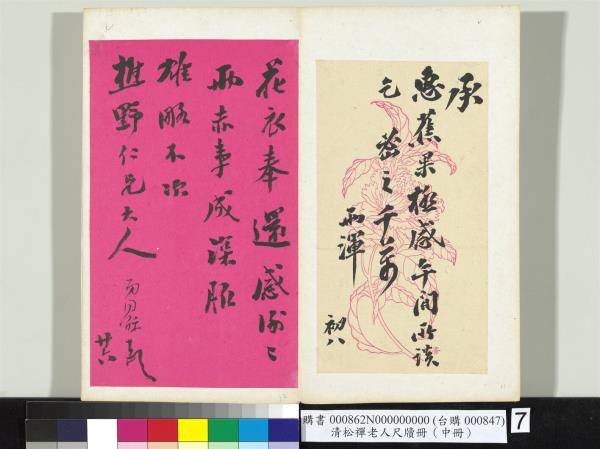 承
惠蕉果極感午間所談
乞密之千萬
兩渾
初八
花衣奉還感謝〻
兩赤事成深服
雄略不次
樵野仁兄大人
廿六
購書 000862N000000000 (台購 000847)
清松禪老人尺牘冊（中冊）
7